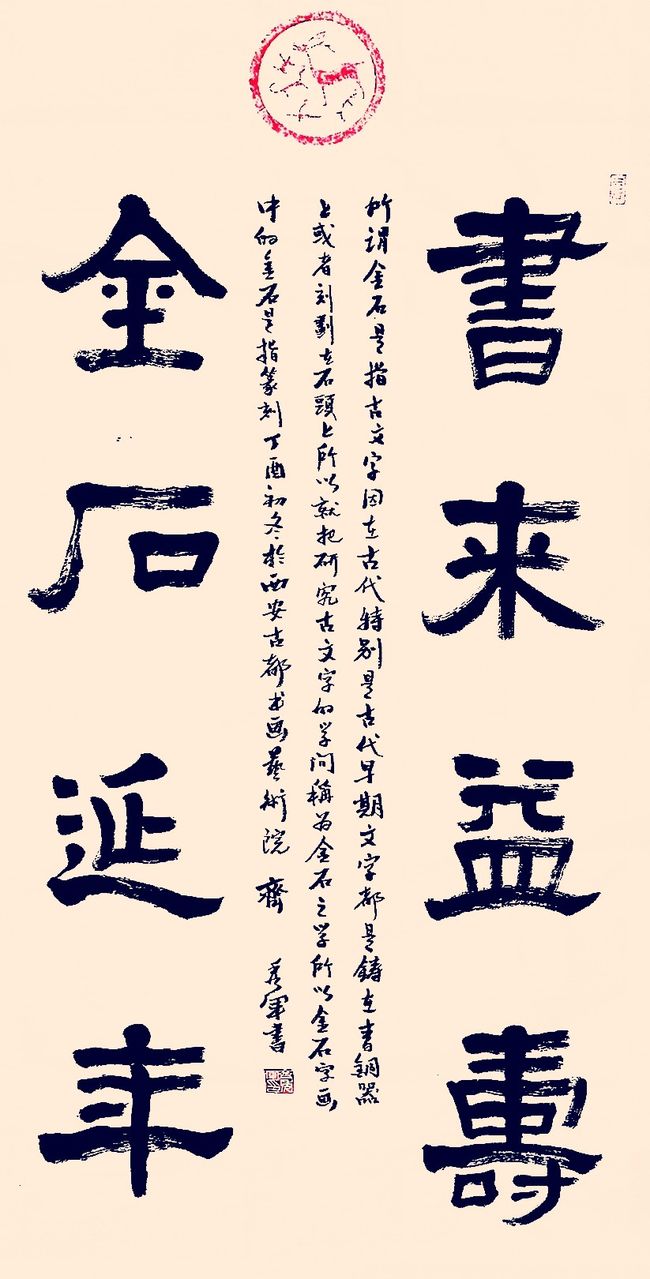 書來益壽
所谓金石是指古文字因在古代特别是古代早期文字都是鋳在青銅器
上或者刻劃在石頭上所以就把研究古文字的学问稱为金石之学所以金石字画
中的金石是指篆刻丁酉初冬於西安古都书画藝術院齊秀軍書
金石延年